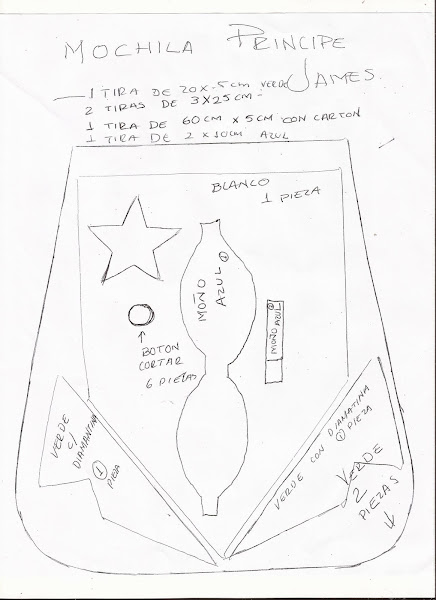 MOCHILA PRINCIPE
JAMES.
1 TIRA DE 20X.5CM VERDE
2 TIRAS DE 3X25CM.
1 TIRA DE 60CM X 5CM CON CARTON
1 TIRA DE 2 X 10CM AZUL
BLANCO
1 PIEZA
MOÑO
AZUL ①
MOÑO AZUL
BOTON
CORTAR
6 PIEZAS
VERDE
C/
DIAMANTINA
① PIEZA
VERDE CON DIAMATINA
① PIEZA
VERDE
2
PIEZAS